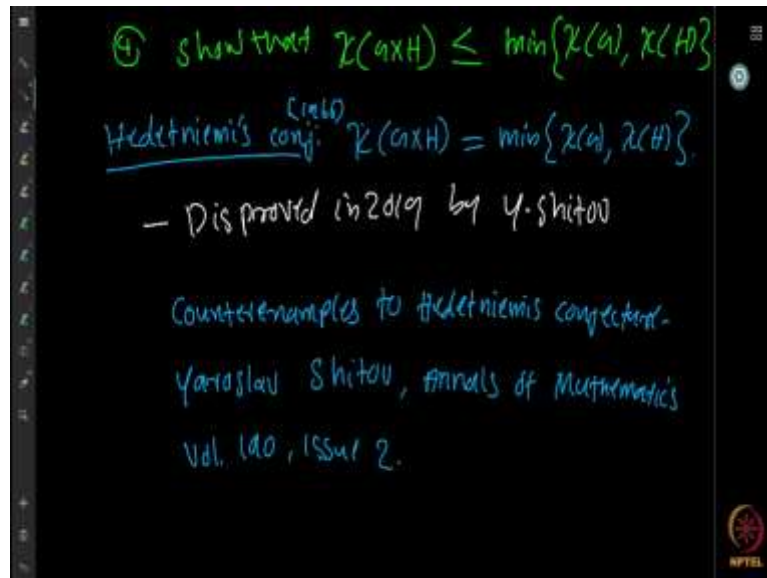 ④ show that χ(G×H) ≤ min{χ(G), χ(H)}
(1966)
Hedetniemi's conj: χ(G×H) = min{χ(G), χ(H)}.
— Disproved in 2019 by Y. Shitov
Counterexamples to Hedetniemis conjecture-
Yaroslav Shitov, Annals of Mathematics
Vol. 190, Issue 2.
NPTEL